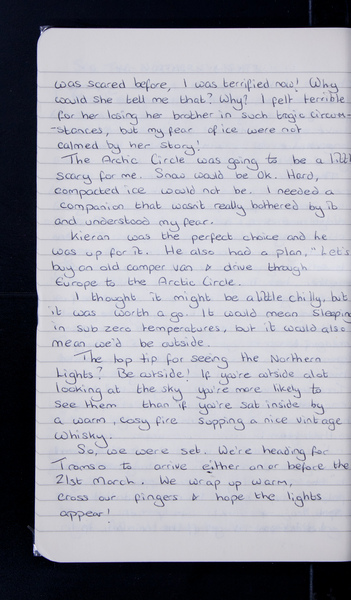 was scared before, I was terrified now! Why
would she tell me that? Why? I felt terrible
for her losing her brother in such tragic circum-
-stances, but my fear of ice were not
calmed by her story!
The Arctic Circle was going to be a little
scary for me. Snow would be Ok. Hard,
compacted ice would not be. I needed a
companion that wasn't really bothered by it
and understood my fear.
Kieran was the perfect choice and he
was up for it. He also had a plan, "Let's
buy an old camper van & drive through
Europe to the Arctic Circle.
I thought it might be a little chilly, but
it was worth a go. It would mean sleeping
in sub zero temperatures, but it would also
mean we'd be outside.
The top tip for seeing the Northern
Lights? Be outside! If you're outside alot
looking at the sky you're more likely to
see them than if you're sat inside by
a warm, cosy fire supping a nice vintage
whisky.
So, we were set. We're heading for
Tromso to arrive either on or before the
21st March. We wrap up warm,
cross our fingers & hope the lights
appear!